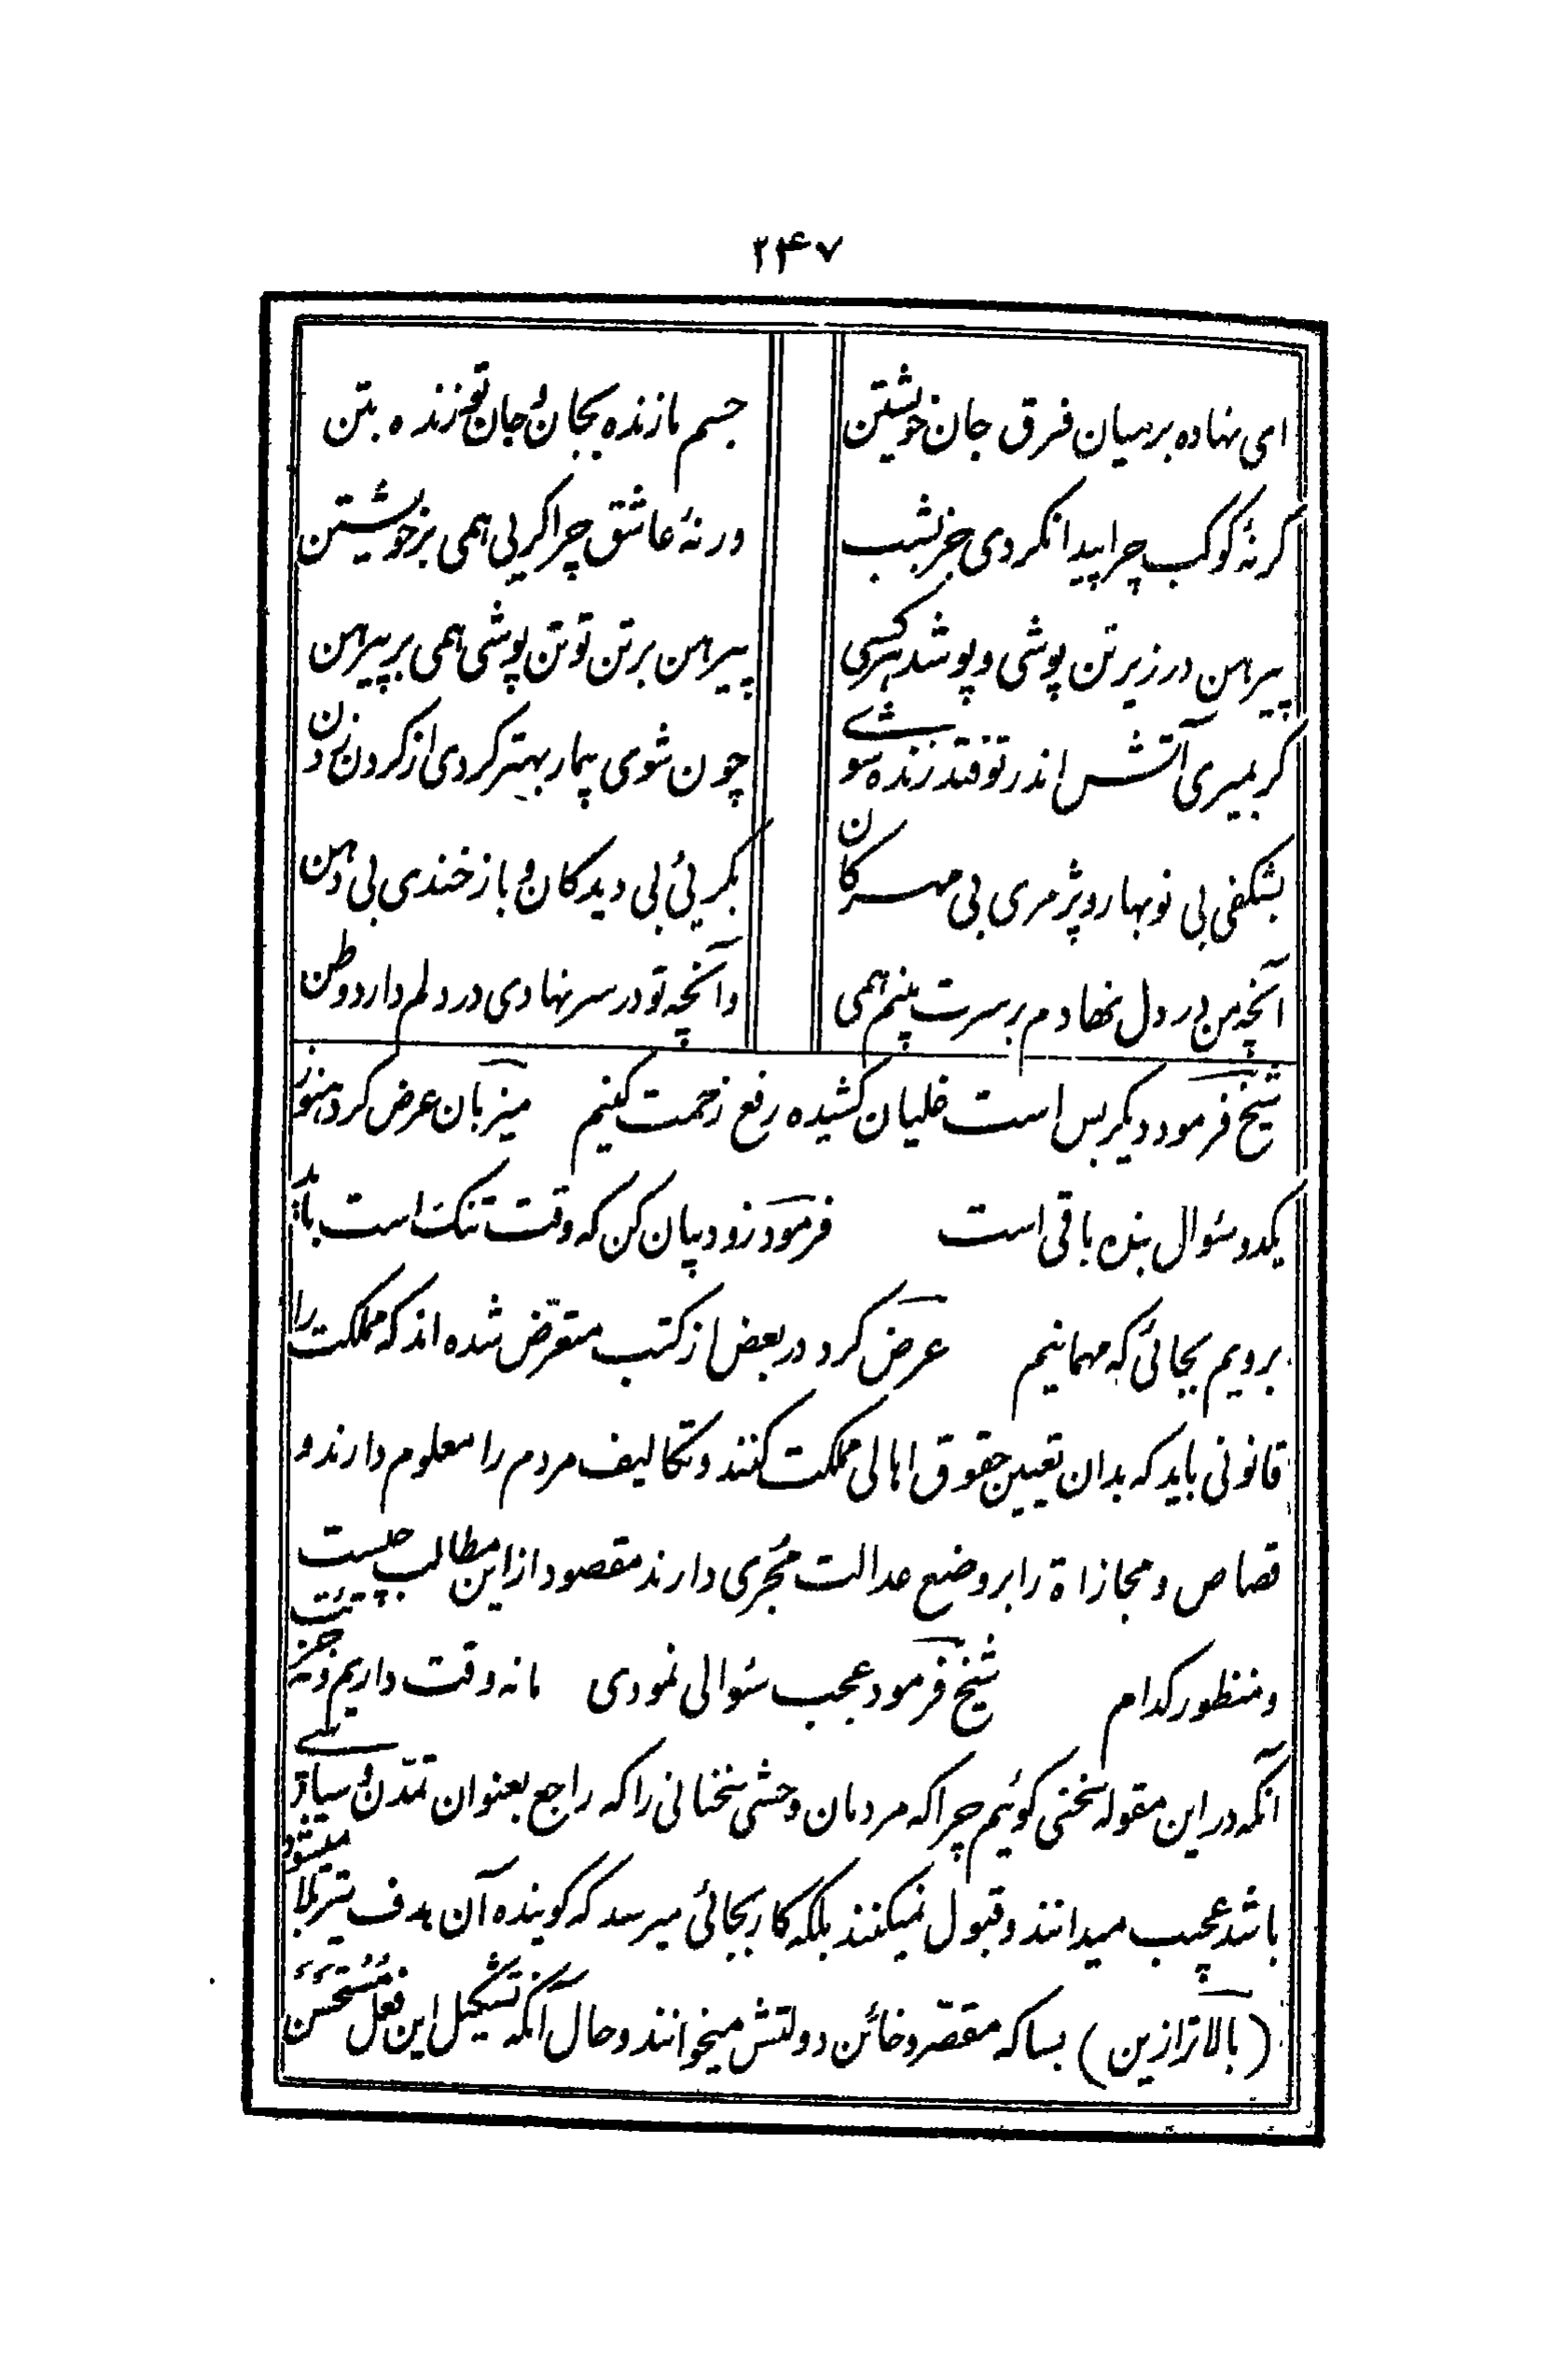 ۲۴۷
ای نهاده بر میان فرق جان خویشتن
جسم ما زنده بجان و جان تو زنده بتن
گر نهٔ کوکب چرا پیدا نکردی جز بشب
ور نهٔ عاشق چرا کریی همی بر خویشتن
پیرهن در زیر تن پوشی و پوشد هر کسی
پیرهن بر تن تو تن پوشی همی بر پیرهن
کر بمیری آتش اندر تو فتد زنده شوی
چون شوی بیمار بهتر کردی از کردن زدن
بشکفی بی نوبهار و پژمری بی مهرکان
بکریئی بی دیدکان و باز خندی بی دهن
آنچه من در دل نهادم بر سرت بینم همی
وآنچه تو در سر نهادی در دلم دارد وطن
شیخ فرمود دیکر بس است غلیان کشیده رفع زحمت کنیم میزبان عرض کرد هنوز
یکدو سئوال بنده باقی است فرمود زود بیان کن که وقت تنک است باید
برویم بجائی که مهمانیم عرض کرد در بعض از کتب متعرّض شده‌اند که مملکت را
قانونی باید که بدان تعیین حقوق اهالی مملکت کنند و تکالیف مردم را معلوم دارند و
قصاص و مجازاة را بر وضع عدالت مُجری دارند مقصود از این مطالب چیست
و منظور کدام شیخ فرمود عجب سئوالی نمودی ما نه وقت داریم و نه جرئت
آنکه در این مقوله سخنی کوئیم چرا که مردمان وحشی سخنانی را که راجع بعنوان تمدّن و سیاسی
باشد عجیب میدانند و قبول نمیکنند بلکه کار بجائی میرسد که کوینده آن هدف تیر بلا میشود
(بالاتر ازین) بسا که مقصّر و خائن دولتش میخوانند و حال آنکه تشکیل این فعل مُستَحسَن